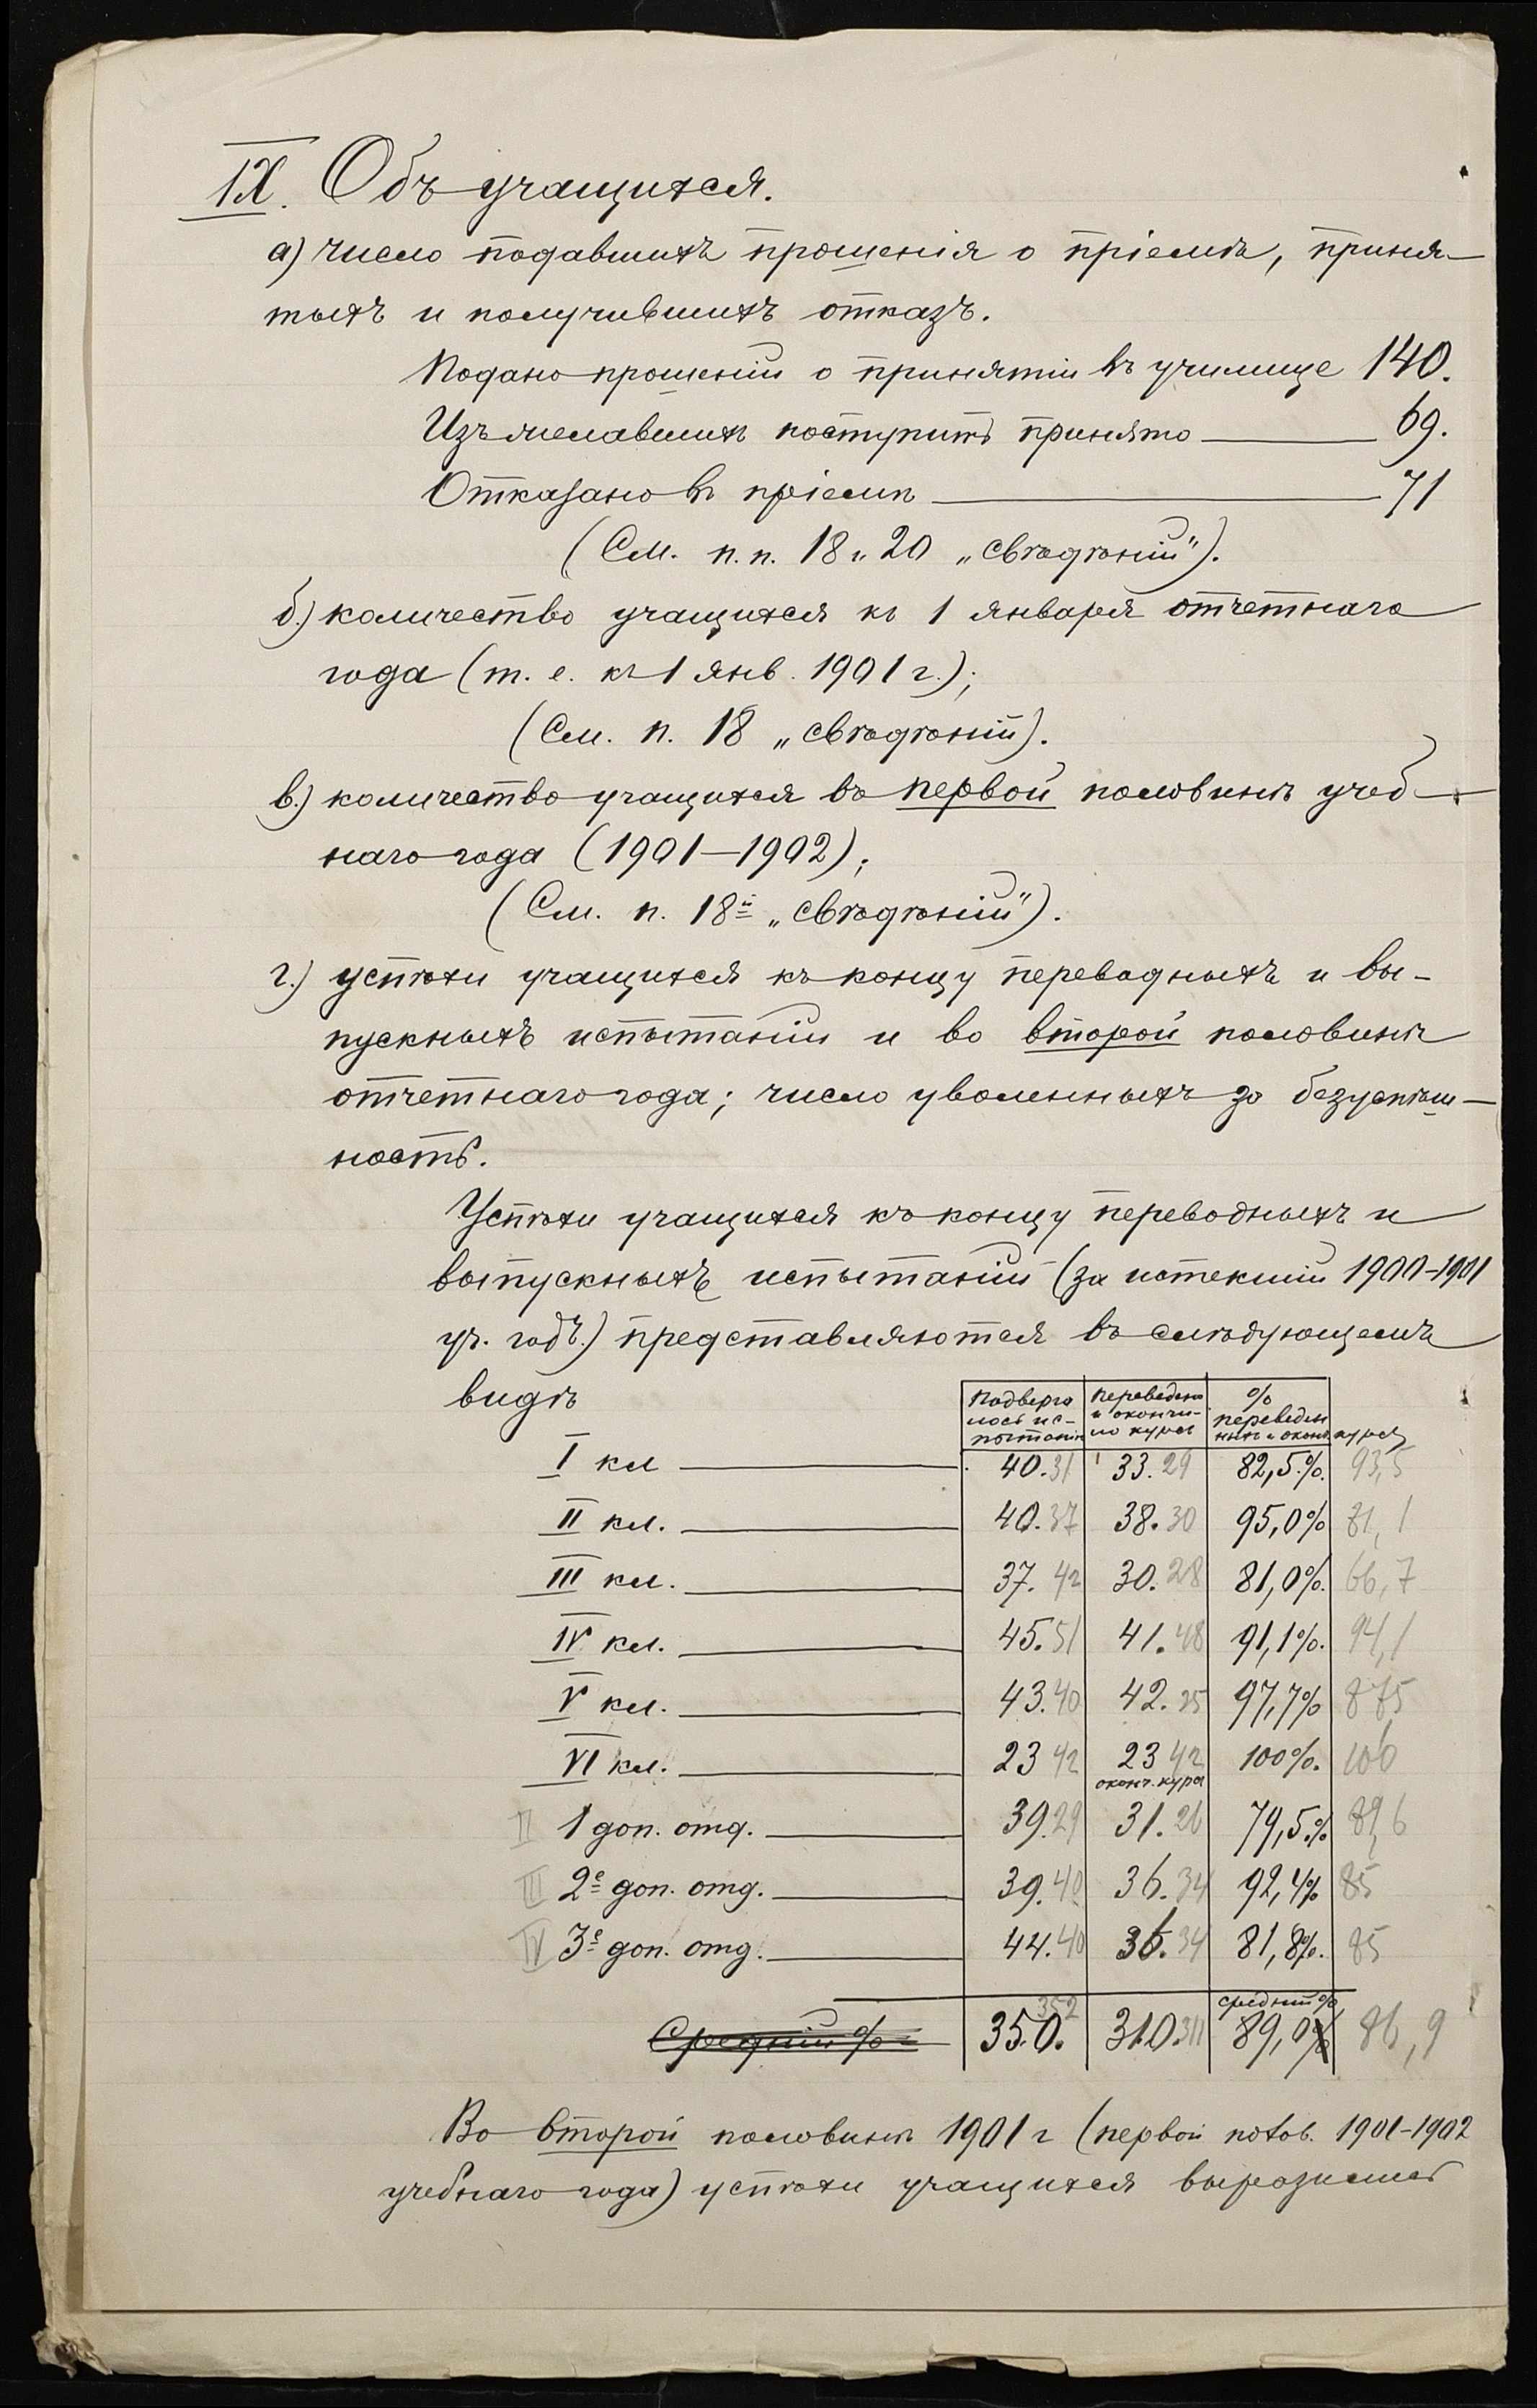 IX. Объ учащихся.
а) число подавшихъ прошенія о пріемѣ, приня-
тыхъ и получившихъ отказъ.
Подано прошеній о принятіи въ училище 140.
Изъ желавшихъ поступить принято 69.
Отказано въ пріемѣ 71
(См. п.п. 18 и 20 „свѣдѣній").
б.) количество учащихся къ 1 января отчетнаго
года (т. е. къ 1 янв. 1901 г.);
(См. п. 18 „свѣдѣній).
в.) количество учащихся въ первой половинѣ учеб-
наго года (1901—1902);
(См. п. 18й „свѣдѣній").
г.) успѣхи учащихся къ концу переводныхъ и вы-
пускныхъ испытаній и во второй половинѣ
отчетнаго года; число уволенныхъ за безуспѣш-
ность.
Успѣхи учащихся къ концу переводныхъ и
выпускныхъ испытаній (за истекшій 1900-1901
уч. годъ.) представляются въ слѣдующемъ
видѣ
Подверга
лось ис-
пытанію
Переведено
и окончи-
ло курсъ
%
переведен
ныхъ и оконч. курсъ
I кл 40. 31 33. 29 82,5%. 93,5
II кл. 40. 37 38. 30 95,0% 81,1
III кл. 37. 42 30. 28 81,0%. 66,7
IV кл. 45. 51 41. 48 91,1%. 94,1
V кл. 43. 40 42. 35 97,7% 87,5
VI кл. 23 42 23 42 100%. 100
оконч. курсъ
II 1 доп. отд. 39. 29 31. 26 79,5% 89,6
III 2е доп. отд. 39. 40 36. 34 92,4% 85
IV 3е доп. отд. 44. 40 36. 34 81,8%. 85
средній %
Средній % 350. 352 310. 311 89,0% 86,9
Во второй половинѣ 1901 г (первой полов. 1901-1902
учебнаго года) успѣхи учащихся выразились